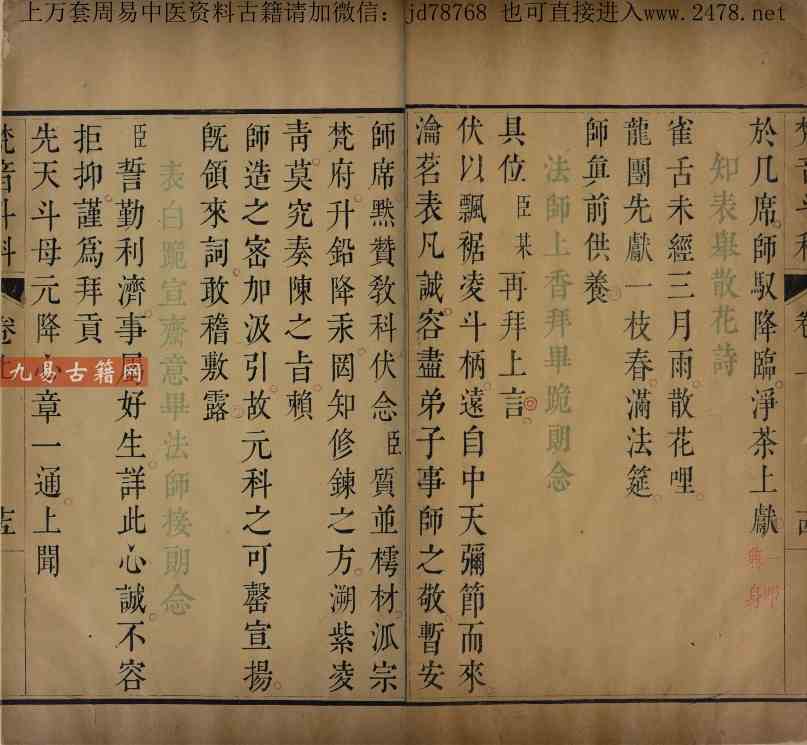 上万套周易中医资料古籍请加微信：jd78768 也可直接进入www.2478.net
於几席師馭降臨淨茶上獻
知表舉散花詩
雀舌未經三月雨散花哩
龍團先獻一枝春滿法筵
師眞前供養
法師上香拜畢跪朗念
具位臣某再拜上言
伏以飄裾凌斗柄遠自中天彌節而來
瀹茗表凡誠容盡弟子事師之敬暫安
師席黙贊教科伏念臣質並樗材泒宗
梵府升鉛降汞罔知修鍊之方溯紫凌
靑莫究奏陳之㫖賴
師造之宻加汲引故元科之可罄宣揚
旣領來詞敢稽敷露
表白跪宣齋意畢法師接朗念
臣誓勤利濟事好生詳此心誠不容
拒抑謹爲拜貢
先天斗母元降心章一通上聞
梵音斗科
九易古籍网